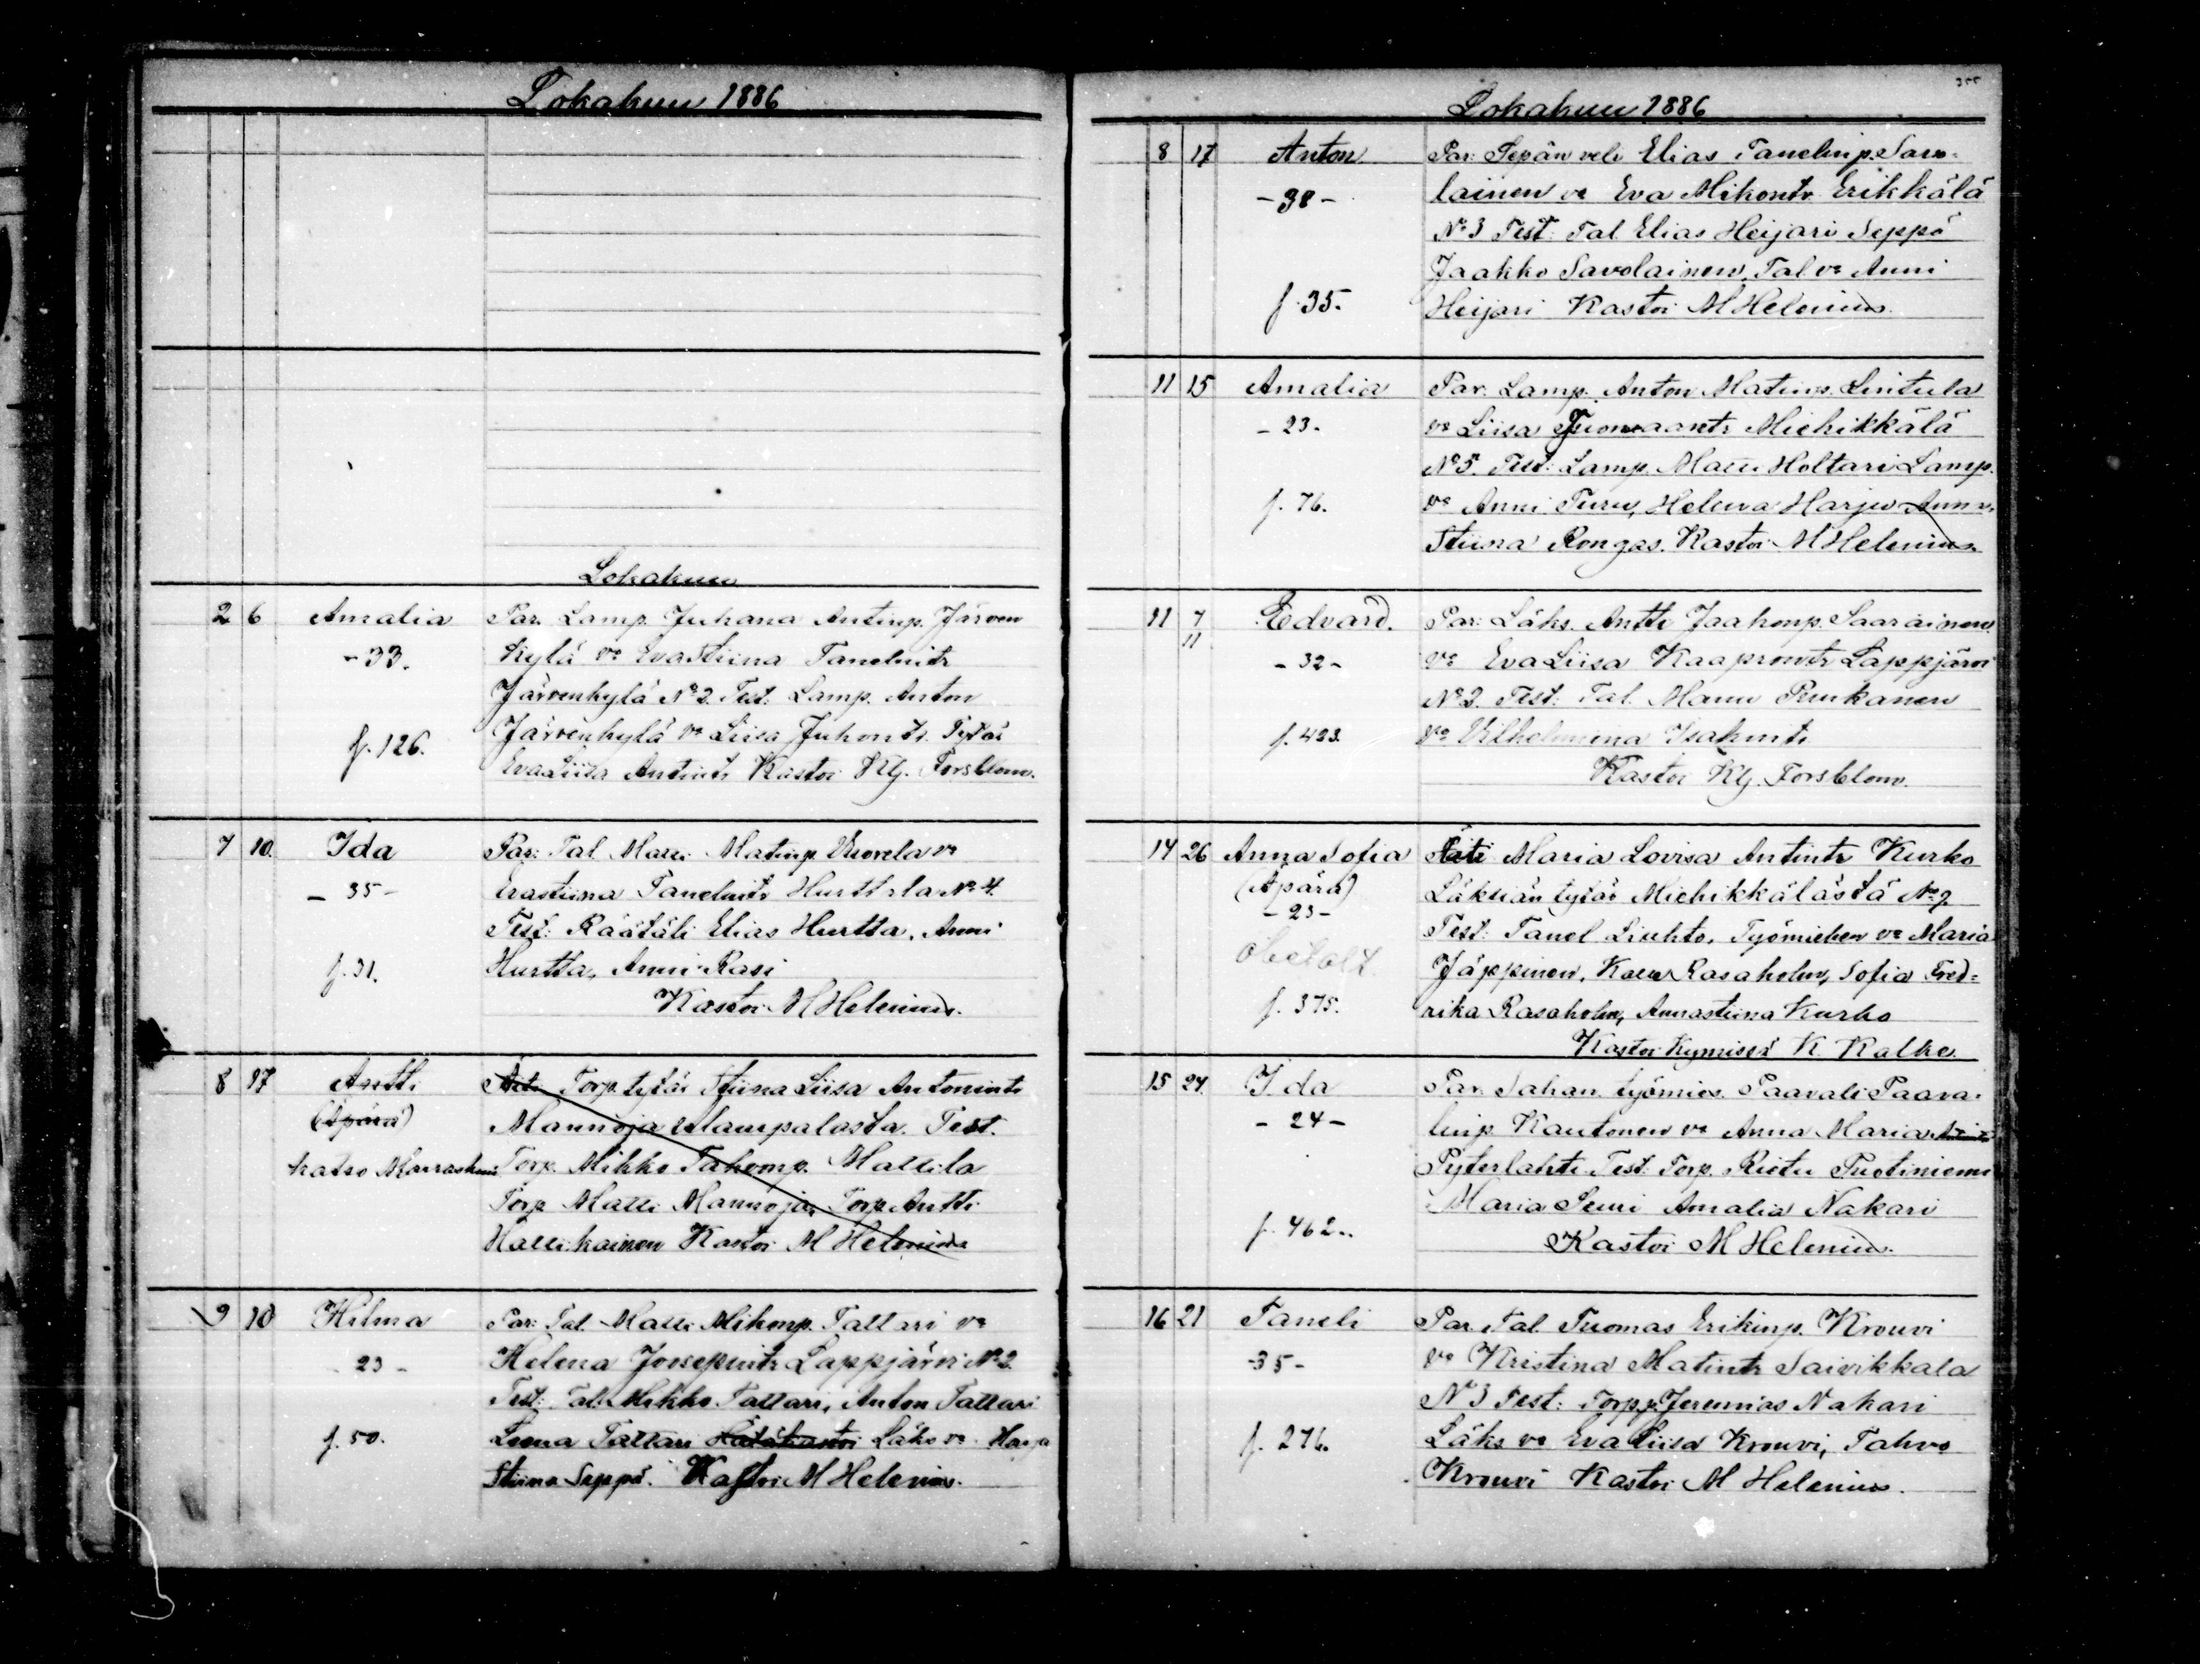 Lokakuu 1886
Lokakuu
2 6 Amalia Par. Lamp. Juhana Antinp. Järven
-33. kylä vo Evastiina Tanelintr
Järvenkylä No 2. Test: Lamp. Anton
f. 126. Järvenkylä vo Liisa Juhontr. Tytär
EvaLiisa Antintr Kastoi Klj. Forsblom.
7 10. Ida Par: Tal. Matti Matinp. Uurela vo
- 35 - Evastiina Tanelintr Hurttala No 4.
Test: Räätäli Elias Hurtta, Anni
f. 31. Hurtta, Anni Rasi
Kastoi M Helenius.
8 17 Antti Äiti Torp. tytär Stiina Liisa Antonintr
(Äpärä) Mannoja Ylämpalasta. Test.
katso Marraskuu Torp. Mihko Tahvonp. Mattila
Torp Matti Mannoja, Torp. Antti
Hattikainen Kastoi M Helenius
9 10 Hilma Par: Tal. Matti Mikonp. Tattari vo
- 23 - Helena Joosepintr Lappjärvi No 2.
Test: Tal. Mikko Tattari, Anton Tattari
f. 50. Leena Tattari Hätäkastoi Läks vo Maria
Stiina Seppä. Kastoi M Helenius.
355
Lokakuu 1886
8 17 Anton Par: Sepän veli Elias Tanelinp. Savo-
- 38 - lainen vo Eva Mikontr Erikkälä
No 3 Test: Tal. Elias Heijari Seppä
Jaakko Savolainen, Tal vo Anni
f. 35. Heijari Kastoi M Helenius.
11 15 Amalia Par. Lamp. Anton Matinp. Lintula
- 23. vo Liisa Tuomaantr Miehikkälä
No 5. Test: Lamp. Matti Holtari Lamp.
f. 76. vo Anni Turu, Helena Harju Anna
Stiina Rongas. Kastoi M Helenius
11 7 Edvard. Par: Läks. Antti Jaakonp. Saarainen
11
- 32 - vo EvaLiisa Kaaprontr Lappjärvi
No 2. Test: Tal. Manu Penkanen
f. 423. vo Vilhelmiina Isakintr.
Kastoi Klj. Forsblom.
14 26 Anna Sofia Äiti Maria Lovisa Antintr Kurko
(Äpärä) Läksiän tytär Miehikkälästä No 2
- 23 - Test: Tanel Liuhto, Työmiehen vo Maria
Jäppinen, Kalle Rasaholm, Sofia Fred-
f. 375. rika Rasaholm, Annastiina Kurko
Kastoi Kymissä K. Kalke.
15 24. Ida Par. Sahan työmies Paavali Paava-
- 24 - linp. Kautonen vo Anna Maria
Pyterlahti Test: Torp. Riitu Tuotiniemi
Maria Semi Amalia Nakari
f. 462. Kastoi M Helenius.
16 21 Taneli Par. Tal. Tuomas Erikinp. Krouvi
-35- vo Kristina Matintr Saivikkala
No 3 Test: Torpp. Jeremias Nakari
f. 276. Läks vo Eva Liisa Krouvi, Tahvo
Krouvi Kastoi M Helenius.